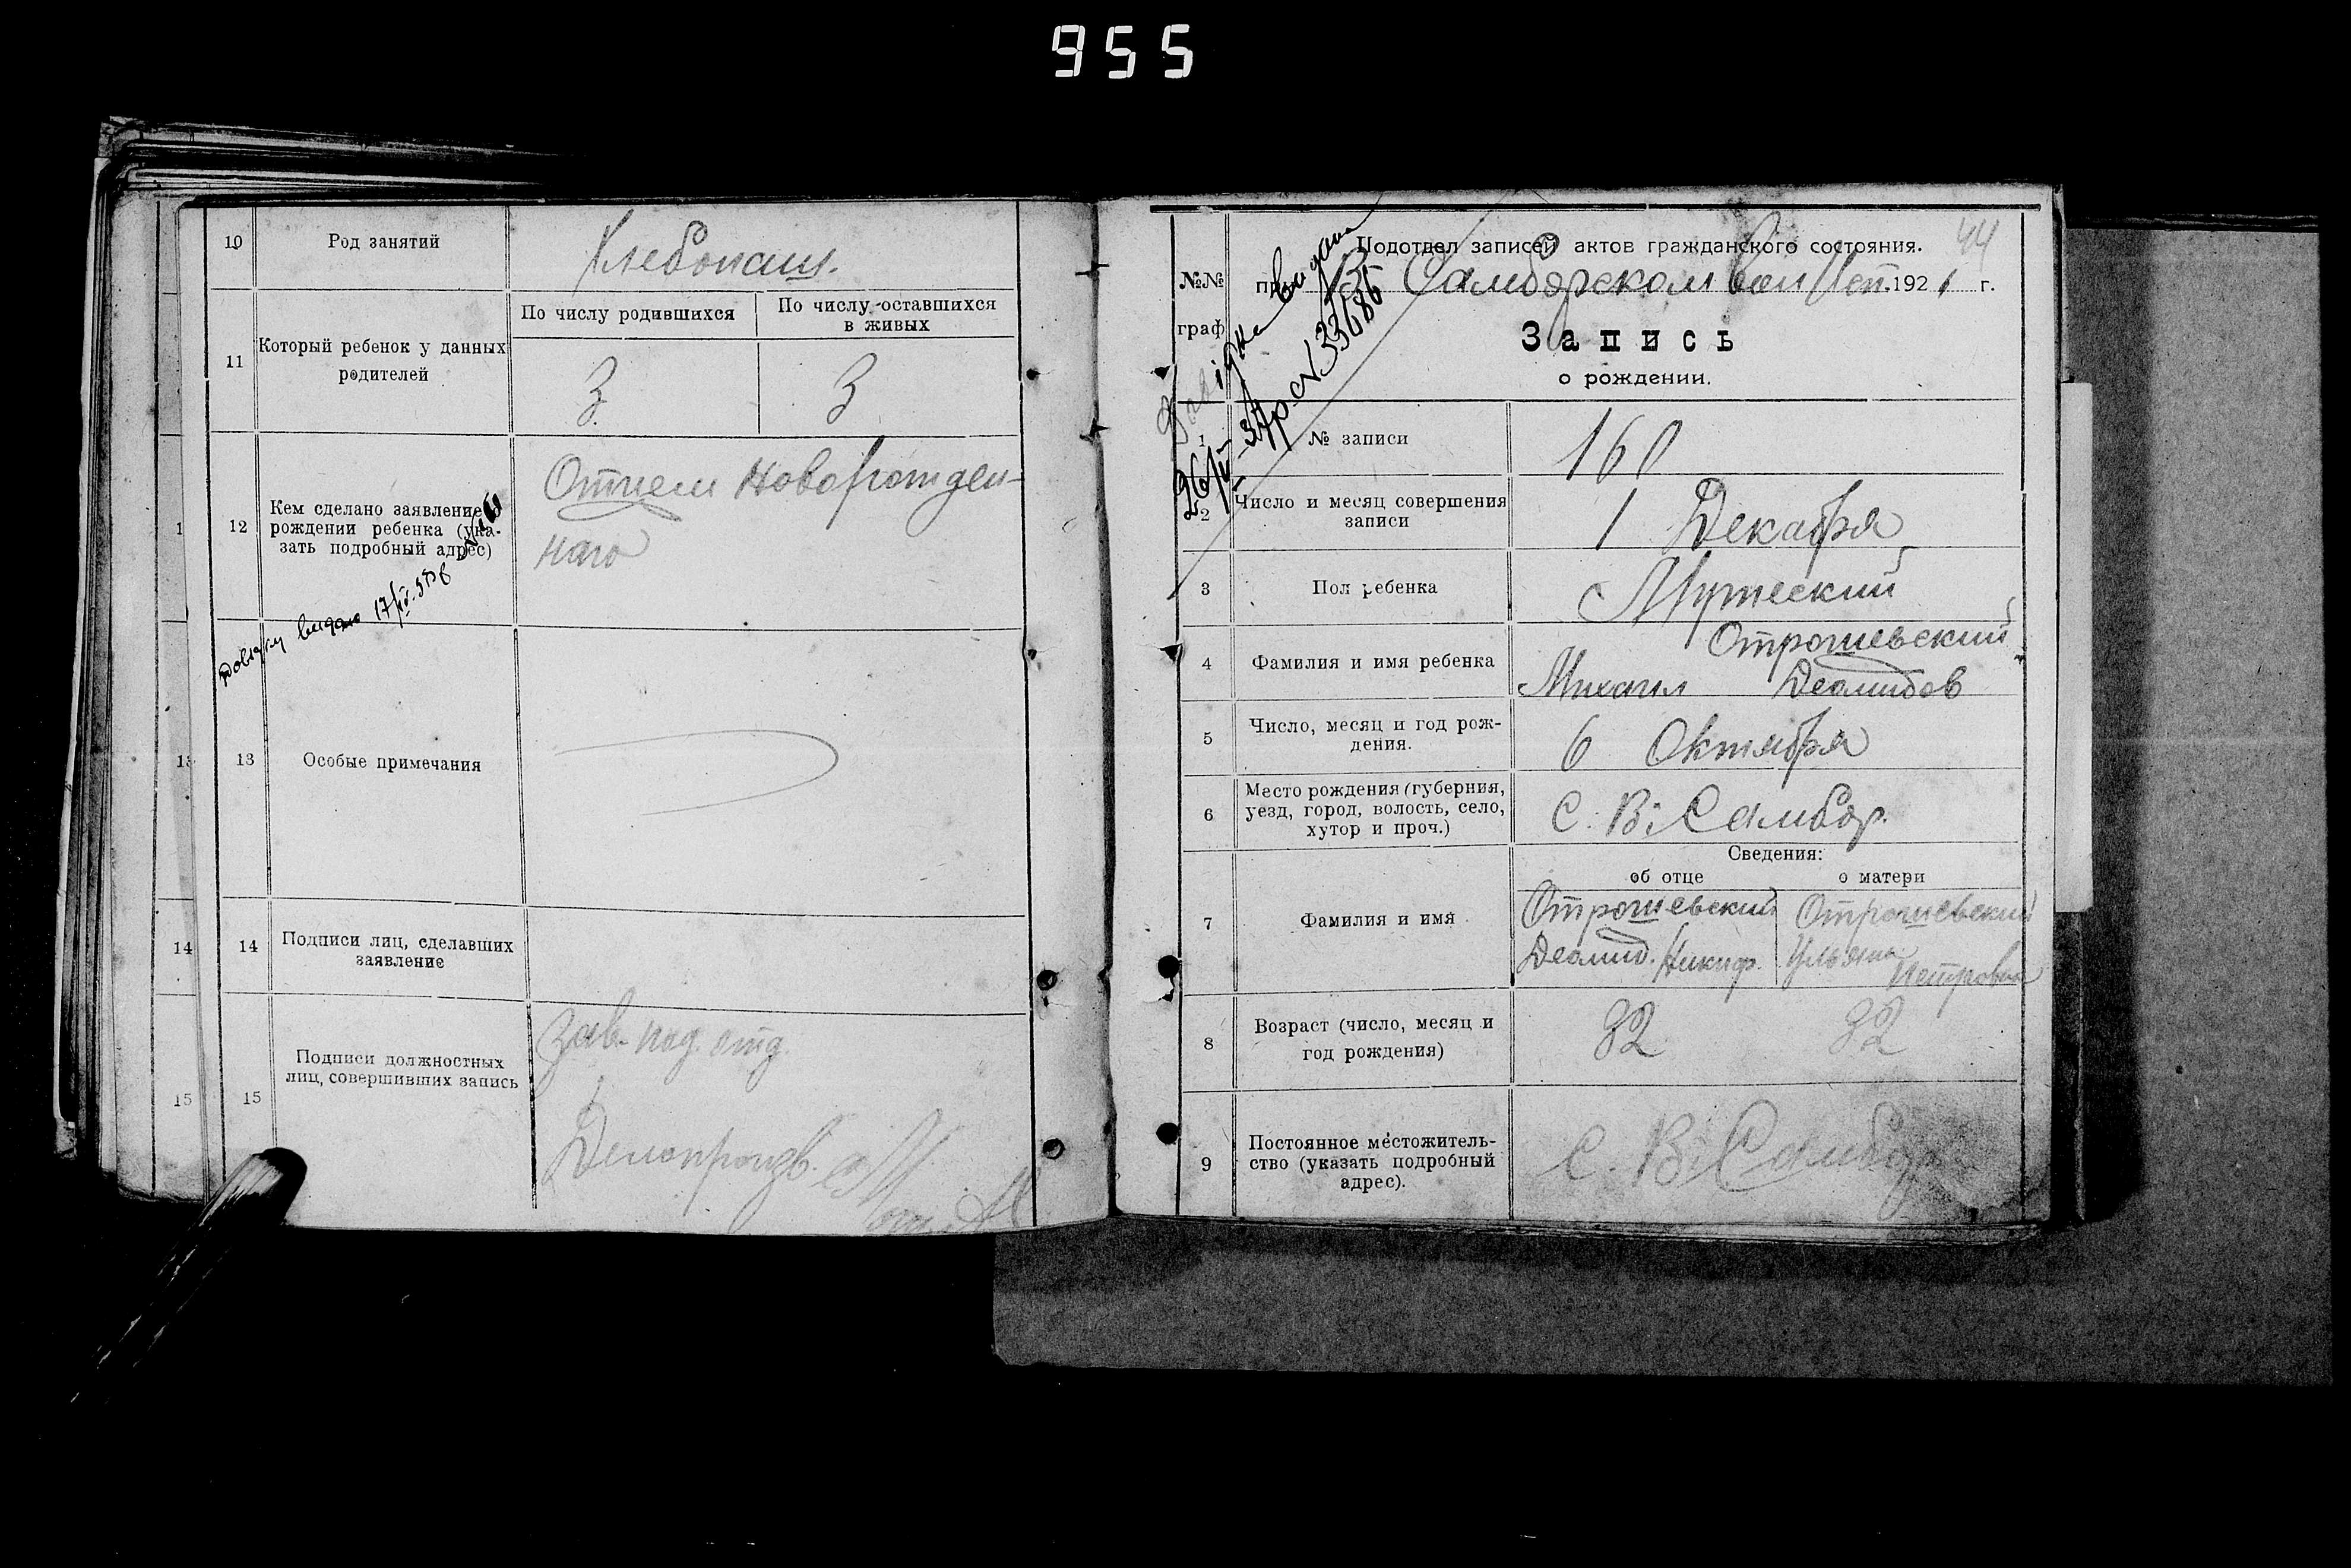 955
10
Род занятий
Хлебопаш.
11
Который ребенок у данных
родителей
По числу родившихся
По числу оставшихся
в живых
3
3
12
Кем сделано заявление о
рождении ребенка (ука-
зать подробный адрес)
Отцем Новорожден-
наго
13
Особые примечания
14
Подписи лиц, сделавших
заявление
15
Подписи должностных
лиц, совершивших запись
Зав. под. отд.
Делопроизв.
1
13
14
15
44
№№
граф
Подотдел записей актов гражданского состояния.
при В. Самборском Вол 1921 г.
видана
26/II-37р. №
Запись
о рождении.
1
№ записи
160
2
Число и месяц совершения
записи
1 Декабря
3
Пол ребенка
Мужеский
4
Фамилия и имя ребенка
Отрошевский
Михаил Деомидов
5
Число, месяц и год рож-
дения.
6 Октября
6
Место рождения (губерния,
уезд, город, волость, село,
хутор и проч.)
С. В. Самбор.
Сведения:
об отце
о матери
7
Фамилия и имя
Отрошевский
Деомид. Никиф.
Отрошевский
Ульяна
Петровна
8
Возраст (число, месяц и
год рождения)
32
32
9
Постоянное местожитель-
ство (указать подробный
адрес).
С. В. Самбор